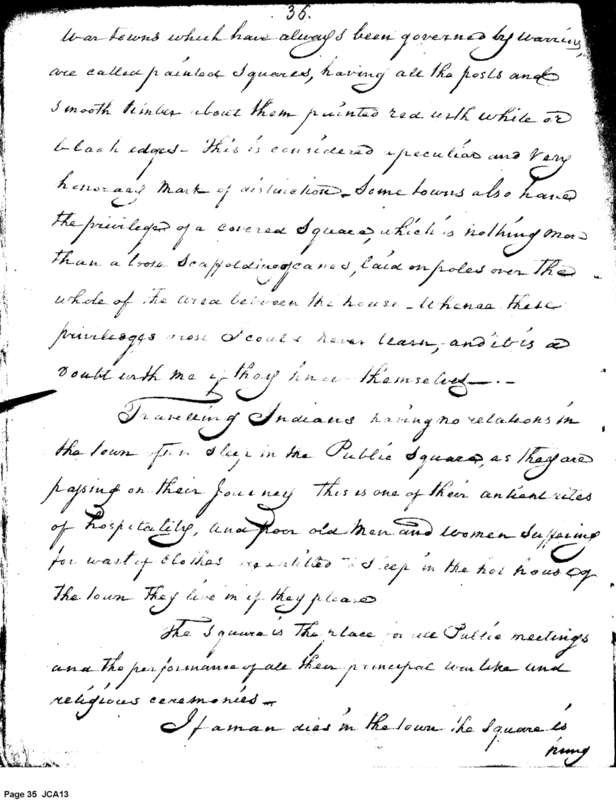 36.
War towns which have always been governed by warriors,
are called painted Squares, having all the posts and
smooth timber about them painted red with white or
black edges - This is considered a peculiar and very
honorary mark of distinction - Some towns also have
the privilege of a covered Square, which is nothing more
than a loose scaffolding of canes, laid on poles over the
whole of the area between the house - Whence these
privileges arose I could never learn, and it is a
Doubt with me if they know themselves -
Travelling Indians having no relations in
the town often sleep in the Public Square, as they are
passing on their Journey This is one of their antient rites
of hospitality, and poor old Men and women suffering
for want of clothes are entitled to sleep in the hot house of
the town they live in if they please
The Square is the place for all Public meetings
and the performance of all their principal warlike and
religious ceremonies -
If a man dies in the town the Square is
hung
Page 35 JCA13